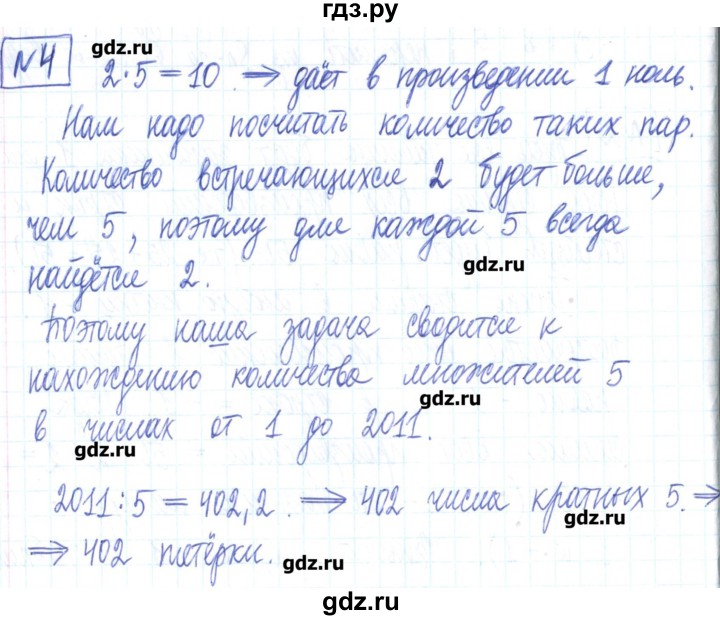 гдз.ру
№4
gdz.ru
2·5=10 ⇒ даёт в произведении 1 ноль.
Нам надо посчитать количество таких пар.
Количество встречающихся 2 будет больше,
чем 5, поэтому для каждой 5 всегда
gdz.ru
найдётся 2.
Поэтому наша задача сводится к
нахождению количества множителей 5
gdz.ru
в числах от 1 до 2011.
gdz.ru
2011:5=402,2. ⇒ 402 числа кратных 5. ⇒
gdz.ru
⇒ 402 пятёрки.
gdz.ru
gdz.ru